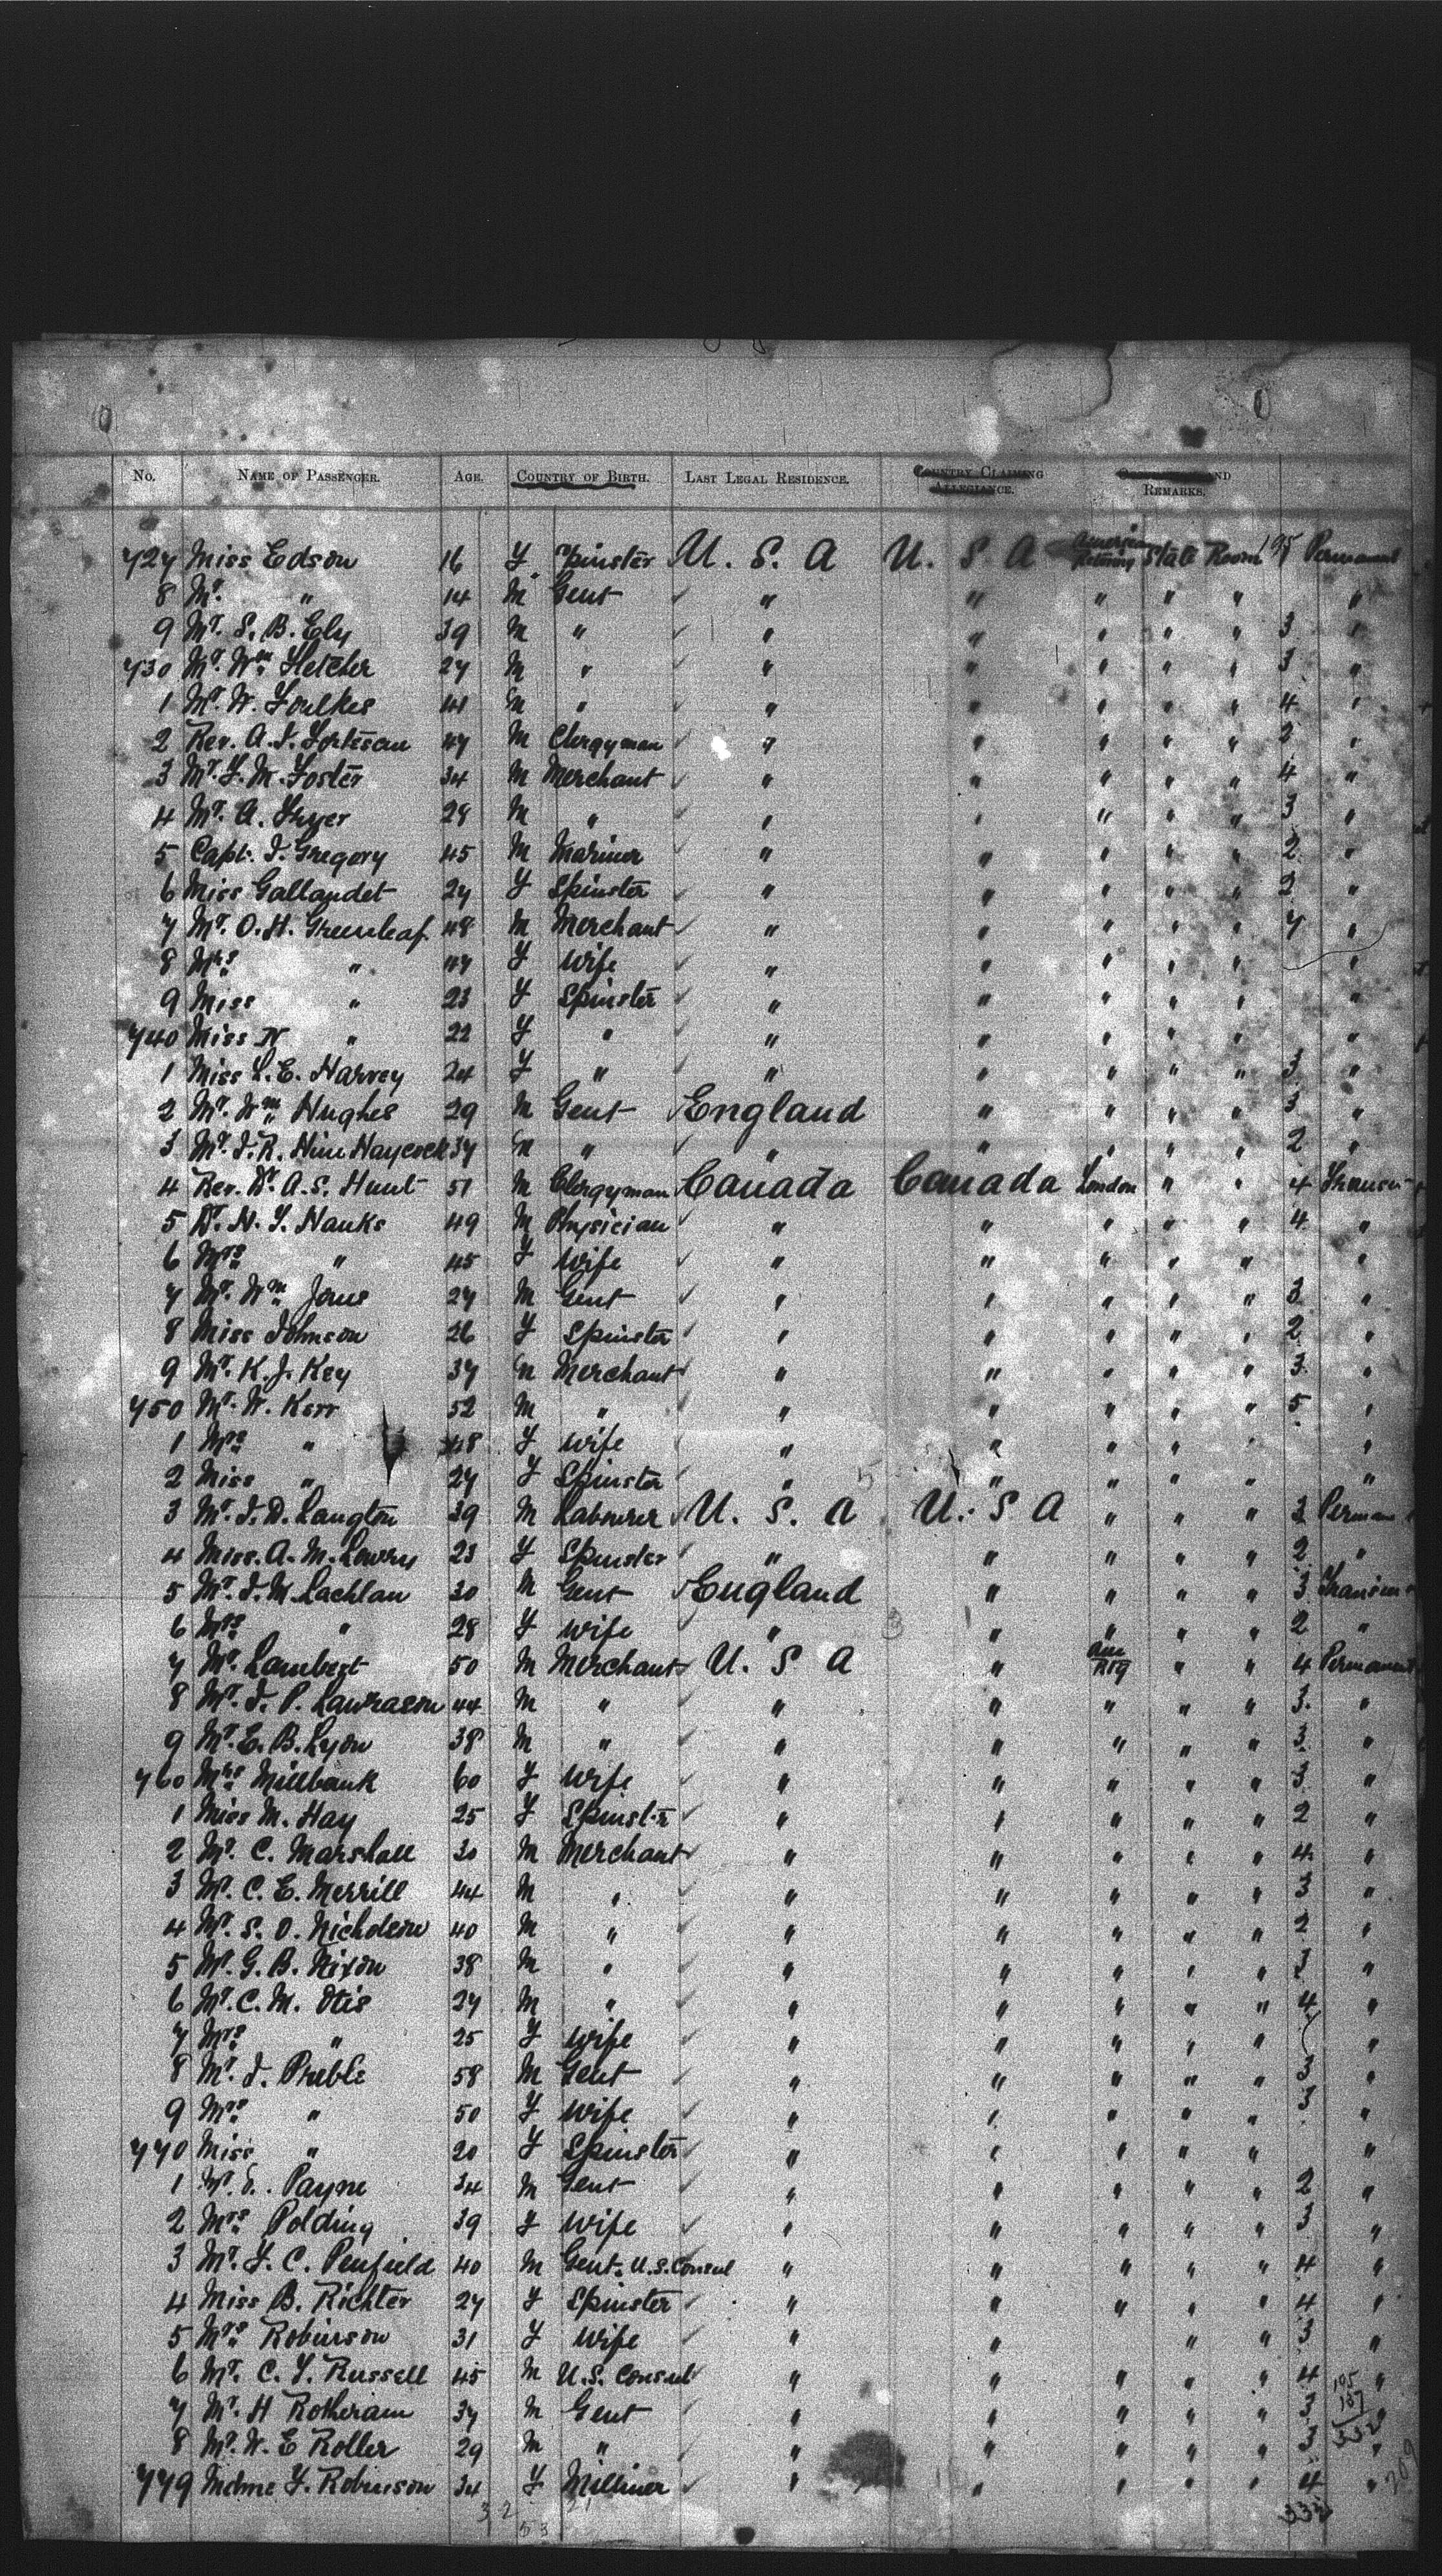 No. NAME OF PASSENGER. AGE. COUNTRY OF BIRTH. LAST LEGAL RESIDENCE. COUNTRY CLAIMING ALLEGIANCE. REMARKS.
727 Miss Edson 16 F Spinster U. S. A U. S. A State Room Permanent
8 Mr. " 14 M Gent " " " " " "
9 Mr. S. B. Ely 39 M " " " " " " 3 "
730 Mr. Wm Fletcher 27 M " " " " " " 3 "
1 Mr. W. Foulkes 41 M " " " " " " 4 "
2 Rev. A. J. 47 M Clergyman " " " " " 2 "
3 Mr. F. M. Foster 34 M Merchant " " " " " 4 "
4 Mr. A. Fryer 28 M " " " " " " 3 "
5 Capt. J. Gregory 45 M Mariner " " " " " 2 "
6 Miss Gallaudet 27 F Spinster " " " " " 2 "
7 Mr. O. H. Greenleaf 48 M Merchant " " " " " 7 "
8 Mrs " 47 F Wife " " " " " "
9 Miss " 23 F Spinster " " " " " "
740 Miss N " 22 F " " " " " " "
1 Miss L. E. Harvey 24 F " " " " " " 3 "
2 Mr. Wm Hughes 29 M Gent England " " " " 3 "
3 Mr. J. R. Haycock 37 M " " " " " " 2 "
4 Rev. Dr. A. S. Hunt 51 M Clergyman Canada Canada London " " 4
5 Dr. H. F. Hanks 49 M Physician " " " " " 4 "
6 Mrs " 45 F Wife " " " " " "
7 Mr. Wm Jones 27 M Gent " " " " " 3 "
8 Miss Johnson 26 F Spinster " " " " " 2 "
9 Mr. K. J. Key 37 M Merchant " " " " " 3 "
750 Mr. W. Kerr 52 M " " " " " " 5 "
1 Mrs " 48 F Wife " " " " " "
2 Miss " 27 F Spinster " " " " " "
3 Mr. J. D. Langton 39 M Labourer U. S. A U. S A " " " 3
4 Miss. A. M. Lowry 23 F Spinster " " " " " 2 "
5 Mr. J. M. Lachlan 30 M Gent England " " " " 3
6 Mrs " 28 F Wife " " " " " 2 "
7 Mr. Lambert 50 M Merchant U. S A " " " 4 Permanent
8 Mr. J. P. Lawrason 44 M " " " " " " 3 "
9 Mr. E. B. Lyon 38 M " " " " " " 3 "
760 Mrs Millbank 60 F Wife " " " " " 3 "
1 Miss M. Hay 25 F Spinster " " " " " 2 "
2 Mr. C. Marshall 30 M Merchant " " " " " 4 "
3 Mr. C. E. Merrill 44 M " " " " " " 3 "
4 Mr. S. O. Nicholson 40 M " " " " " " 2 "
5 Mr. G. B. Nixon 38 M " " " " " " 3 "
6 Mr. C. M. Otis 27 M " " " " " " 4 "
7 Mrs " 25 F Wife " " " " " "
8 Mr. J. Preble 58 M Gent " " " " " 3 "
9 Mrs " 50 F Wife " " " " " 3 "
770 Miss " 20 F Spinster " " " " " "
1 Mr. Payne 34 M Gent " " " " " 2 "
2 Mrs Polding 39 F Wife " " " " " 3 "
3 Mr. F. C. Penfield 40 M Gent. U.S. Consul " " " " " 4 "
4 Miss B. Richter 27 F Spinster " " " " " 4 "
5 Mrs Robinson 31 F Wife " " " " 3 "
6 Mr. C. F. Russell 45 M U.S. Consul " " " " " 4 "
7 Mr. H Rotheram 37 M Gent " " " " " 3 "
8 Mr. W. E Roller 29 M " " " " " " 3 "
779 Mdme F. Robinson 34 F Milliner " " " " " 4 "
32 21
53